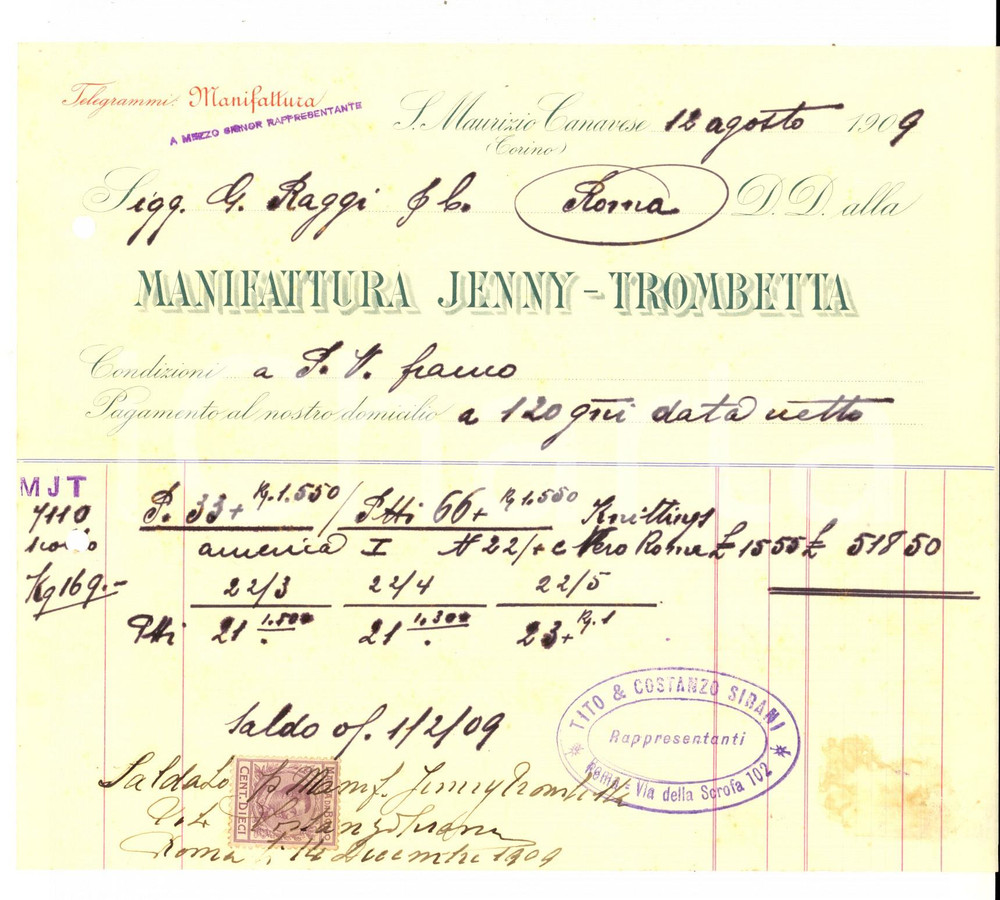 Telegrammi: Manifattura
A MEZZO SIGNOR RAPPRESENTANTE
S. Maurizio Canavese 12 agosto 1909
(Torino)
Sigg. G. Raggi & C. Roma D. D. alla
MANIFATTURA JENNY-TROMBETTA
Condizioni a S. V. franco
Pagamento al nostro domicilio a 120 gni data netto
MJT
7110
Kg 169.-
P. 33+ Kg. 1.550 / Ptti 66+ Kg 1.550 Knittings
america I N 22/+c Vero Roma £ 15 55 £ 518 50
22/3 22/4 22/5
Ptti 21 1.500 21 1.300 23+ Kg. 1
Saldo of. 1/2/09
TITO & COSTANZO SIBANI
Rappresentanti
Roma - Via della Scrofa 102
Saldato p Manif. Jenny Trombetta
Tito & Costanzo
Roma li 14 Dicembre 1909
CENT. DIECI